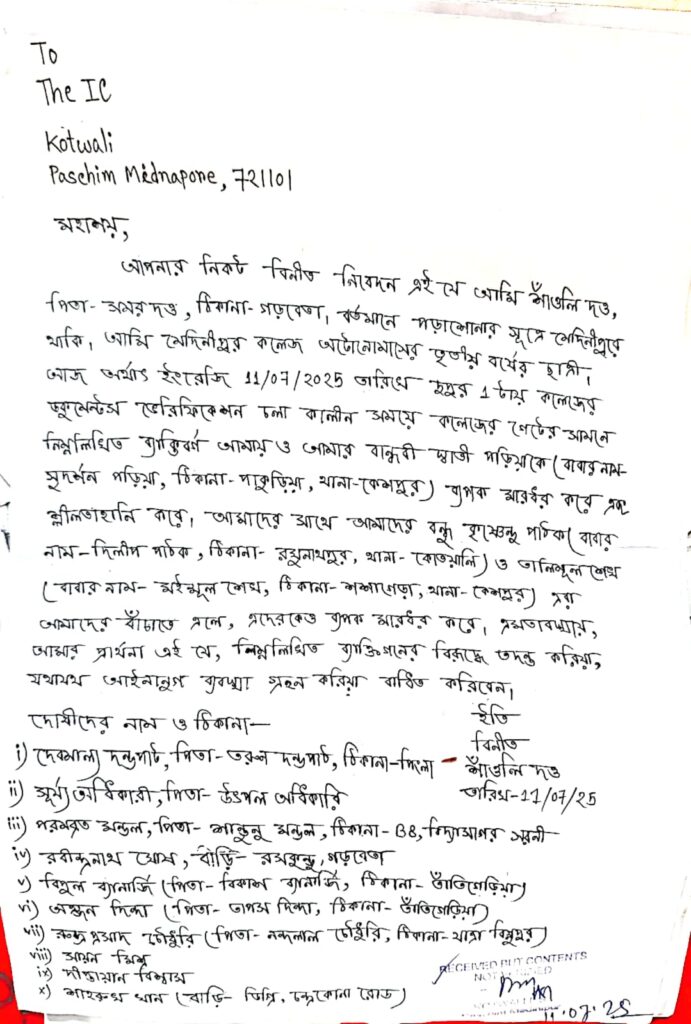 To
The IC
Kotwali
Paschim Midnapone, 721101
মহাশয়,
আপনার নিকট বিনীত নিবেদন এই যে আমি দত্ত,
পিতা- সমর দত্ত, ঠিকানা- গড়বেতা, বর্তমানে পড়াশোনার সূত্রে মেদিনীপুরে
থাকি, আমি মেদিনীপুর কলেজ অটোনোমাসের তৃতীয় বর্ষের ছাত্রী।
আজ অর্থাৎ ইংরেজি 11/07/2025 তারিখে দুপুর 1 টায় কলেজের
ডকুমেন্টস ভেরিফিকেশন চলা কালীন সময়ে কলেজের গেটের সামনে
নিম্নলিখিত ব্যক্তিবর্গ আমায় ও আমার বান্ধবী স্বাতী পড়িয়াকে (বাবার নাম-
সুদর্শন পড়িয়া, ঠিকানা- পাকুড়িয়া, থানা-কেশপুর) ব্যাপক মারধর করে এবং
শ্লীলতাহানি করে। আমাদের সাথে আমাদের বন্ধু কৃষ্ণেন্দু পাঠক (বাবার
নাম-দিলীপ পাঠক, ঠিকানা- রঘুনাথপুর, থানা- কোতয়ালি) ও শেখ
(বাবার নাম- শেখ, ঠিকানা- থানা- কেশপুর) এরা
আমাদের বাঁচাতে এলে, এদেরকেও ব্যাপক মারধর করে। এমতাবস্থায়,
আমার প্রার্থনা এই যে, নিম্নলিখিত ব্যক্তিগনের বিরুদ্ধে তদন্ত করিয়া,
যথাযথ আইনানুগ ব্যবস্থা গ্রহন করিয়া বাধিত করিবেন।
দোষীদের নাম ও ঠিকানা—
ইতি
বিনীত
দত্ত
তারিখ-11/07/25
i) দেবমাল্য দন্ডপাট, পিতা- তরুন দন্ডপাট, ঠিকানা-
ii) সূর্য্য অধিকারী, পিতা- উৎপল অধিকারি
iii) পরমব্রত মন্ডল, পিতা- শান্তুনু মন্ডল, ঠিকানা- B8, বিদ্যাসাগর সরনী
iv) রবীন্দ্রনাথ ঘোষ, বাড়ি- রসকুন্ডু, গড়বেতা
v) বিপুল ব্যানার্জি (পিতা- বিকাশ ব্যানার্জি, ঠিকানা- তাঁতিগেড়িয়া)
vi) অঞ্জন দিন্দা (পিতা- তাপস দিন্দা, ঠিকানা- তাঁতিগেড়িয়া)
vii) রুদ্র প্রসাদ চৌধুরি (পিতা- নন্দলাল চৌধুরি, ঠিকানা- যাত্রা বিষ্ণুপুর)
viii) সায়ন মিশ্র
ix) বিশ্বাস
x) শাহরুখ খান (বাড়ি- ডিগ্রি, চন্দ্রকোনা রোড)
RECEIVED BUT CONTENTS
NOT
11.07.25